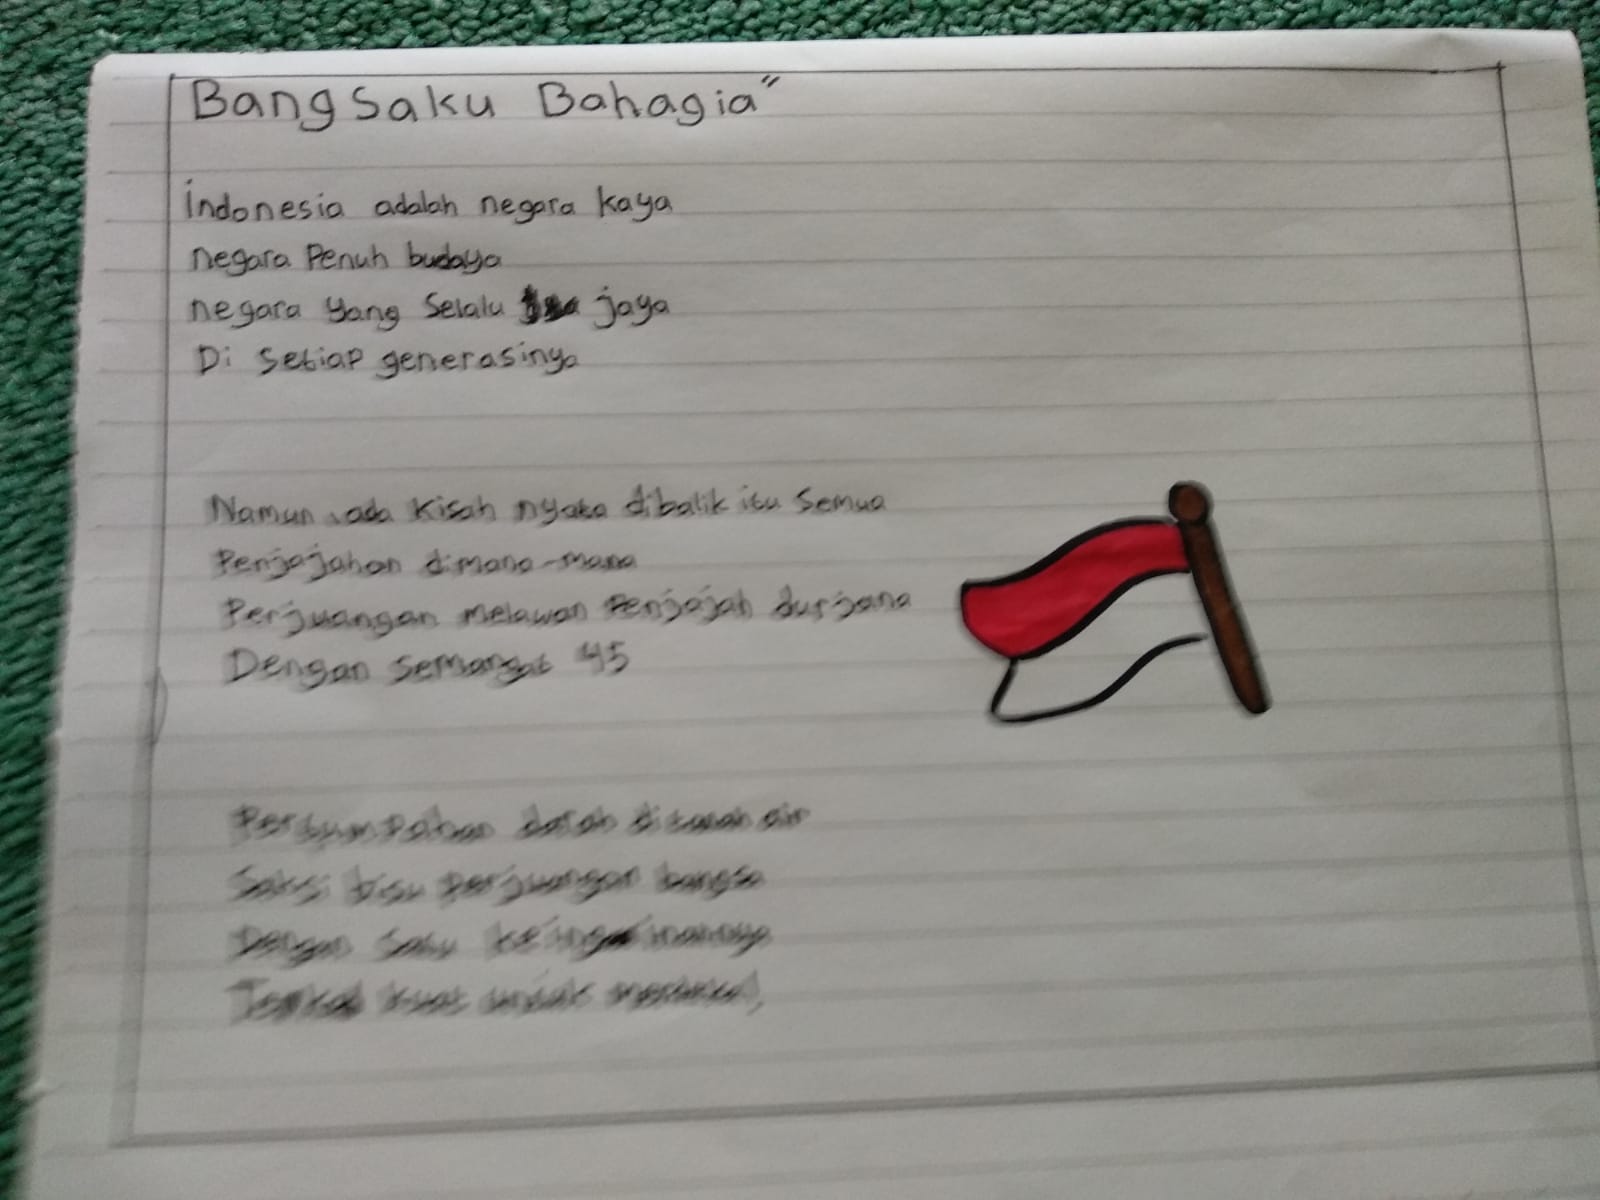 Bangsaku Bahagia"
indonesia adalah negara kaya
negara Penuh budaya
negara yang Selalu jaya
Di Setiap generasinya
Namun, ada Kisah nyata dibalik itu Semua
Penjajahan dimana-mana
Perjuangan Melawan Penjajah durjana
Dengan semangat 45
Pertumpahan darah ditanah air
Saksi bisu perjuangan bangsa
Dengan Satu keinginannya
kuat untuk